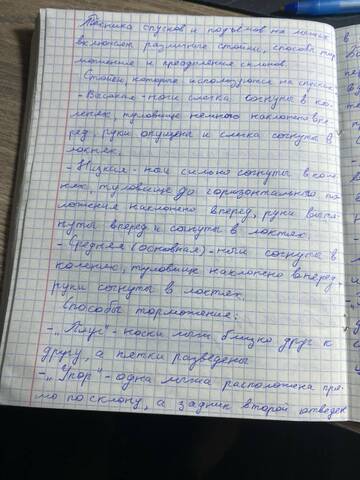 Техника спусков и подъёмов на лыжах
включает различные стойки, способы тор
можения и преодоления склонов.
Стойки, которые используются на спусках:
- Высокая - ноги слегка согнуты в ко-
ленях, туловище немного наклонено впе
ред, руки опущены и слегка согнуты в
локтях.
- Низкая - ноги сильно согнуты в коле
нях, туловище до горизонтального по
ложения наклонено вперед, руки вытя
нуты вперед и согнуты в локтях
- Средняя (основная) - ноги согнуты в
коленях, туловище наклонено вперед,
руки согнуты в локтях.
Способы торможения:
- „Плуг" - носки лыж близко друг к
другу, а пятки разведены
- „Упор" - одна лыжа расположена пря
мо по склону, а задник второй отведен